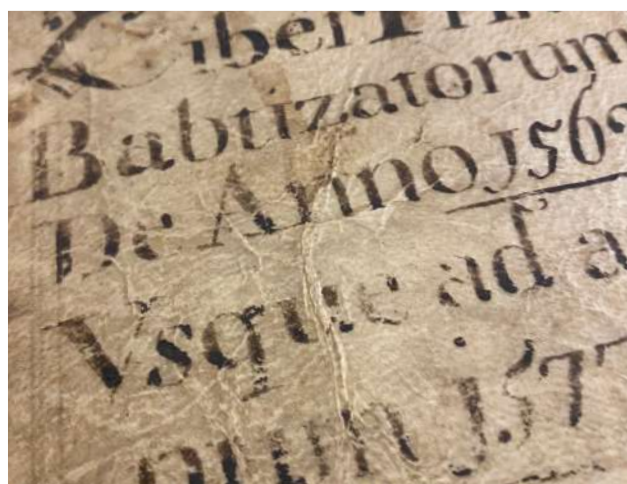 Liber
Babtizatorum
De Anno 156
Vsque ad a
num 157